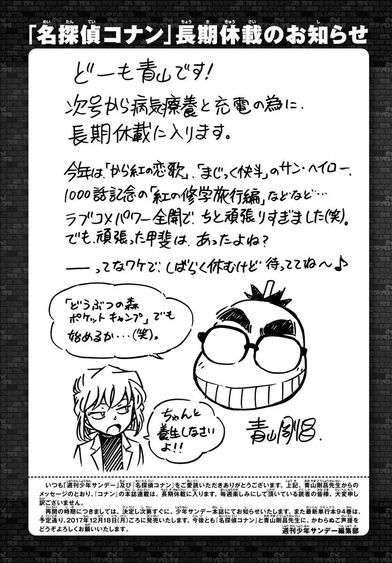 「名探偵コナン」長期休載のお知らせ
どーも青山です!
次号から病気療養と充電の為に、
長期休載に入ります。
今年は、「から紅の恋歌」、「まじっく快斗」のサン・ヘイロー、
1000話記念の「紅の修学旅行編」などなど…
ラブコメパワー全開で、ちと頑張りすぎました(笑)。
でも、頑張った甲斐は、あったよね?
――ってなワケで、しばらく休むけど待っててね〜♪
「どうぶつの森
ポケットキャンプ」でも
始めるか…(笑)。
ちゃんと
養生しなさい
よ!!
青山剛昌
いつも「週刊少年サンデー」及び「名探偵コナン」をご愛読いただきありがとうございます。上記、青山剛昌先生からの
メッセージのとおり、「コナン」の本誌連載は、長期休載に入ります。毎週楽しみにして頂いている読者の皆様、大変申し
訳ございません。
再開の時期につきましては、決定し次第すぐに、少年サンデー本誌にてお知らせいたします。また最新単行本94巻は、
予定通り、2017年12月18日(月)ごろに発売いたします。今後とも「名探偵コナン」と青山剛昌先生に、かわらぬご声援を
どうぞよろしくお願いいたします。
週刊少年サンデー編集部